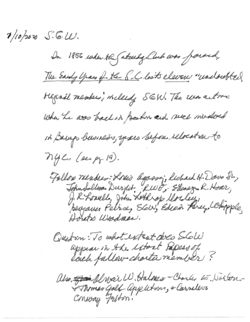 7/10/20 S.G.W.
In 1856 when the Saturday Club was formed
The Early Years of the S.C. lists eleven "undoubted
original members," including SGW. This was a time
when he was back in and most involved
in Barings business, years before relocation to
NYC (see pg 19).
Fellow members: Louis Agassiz, Richard H. Dana Jr.,
John Sullivan Dwight, RWE, Ebenezer R. Hoar,
J.R. Lowell, John Lothrop Motley,
Benjamin Peirce, SGW, Edwin Percy Whipple,
Horatio Woodman.
Question: To what extent does SGW
appear in the extant papers of
each fellow charter member?
Also, Oliver W. Holmes - Charles E. Norton
+ Thomas Gold Appleton, + Cornelius
Conway Felton.